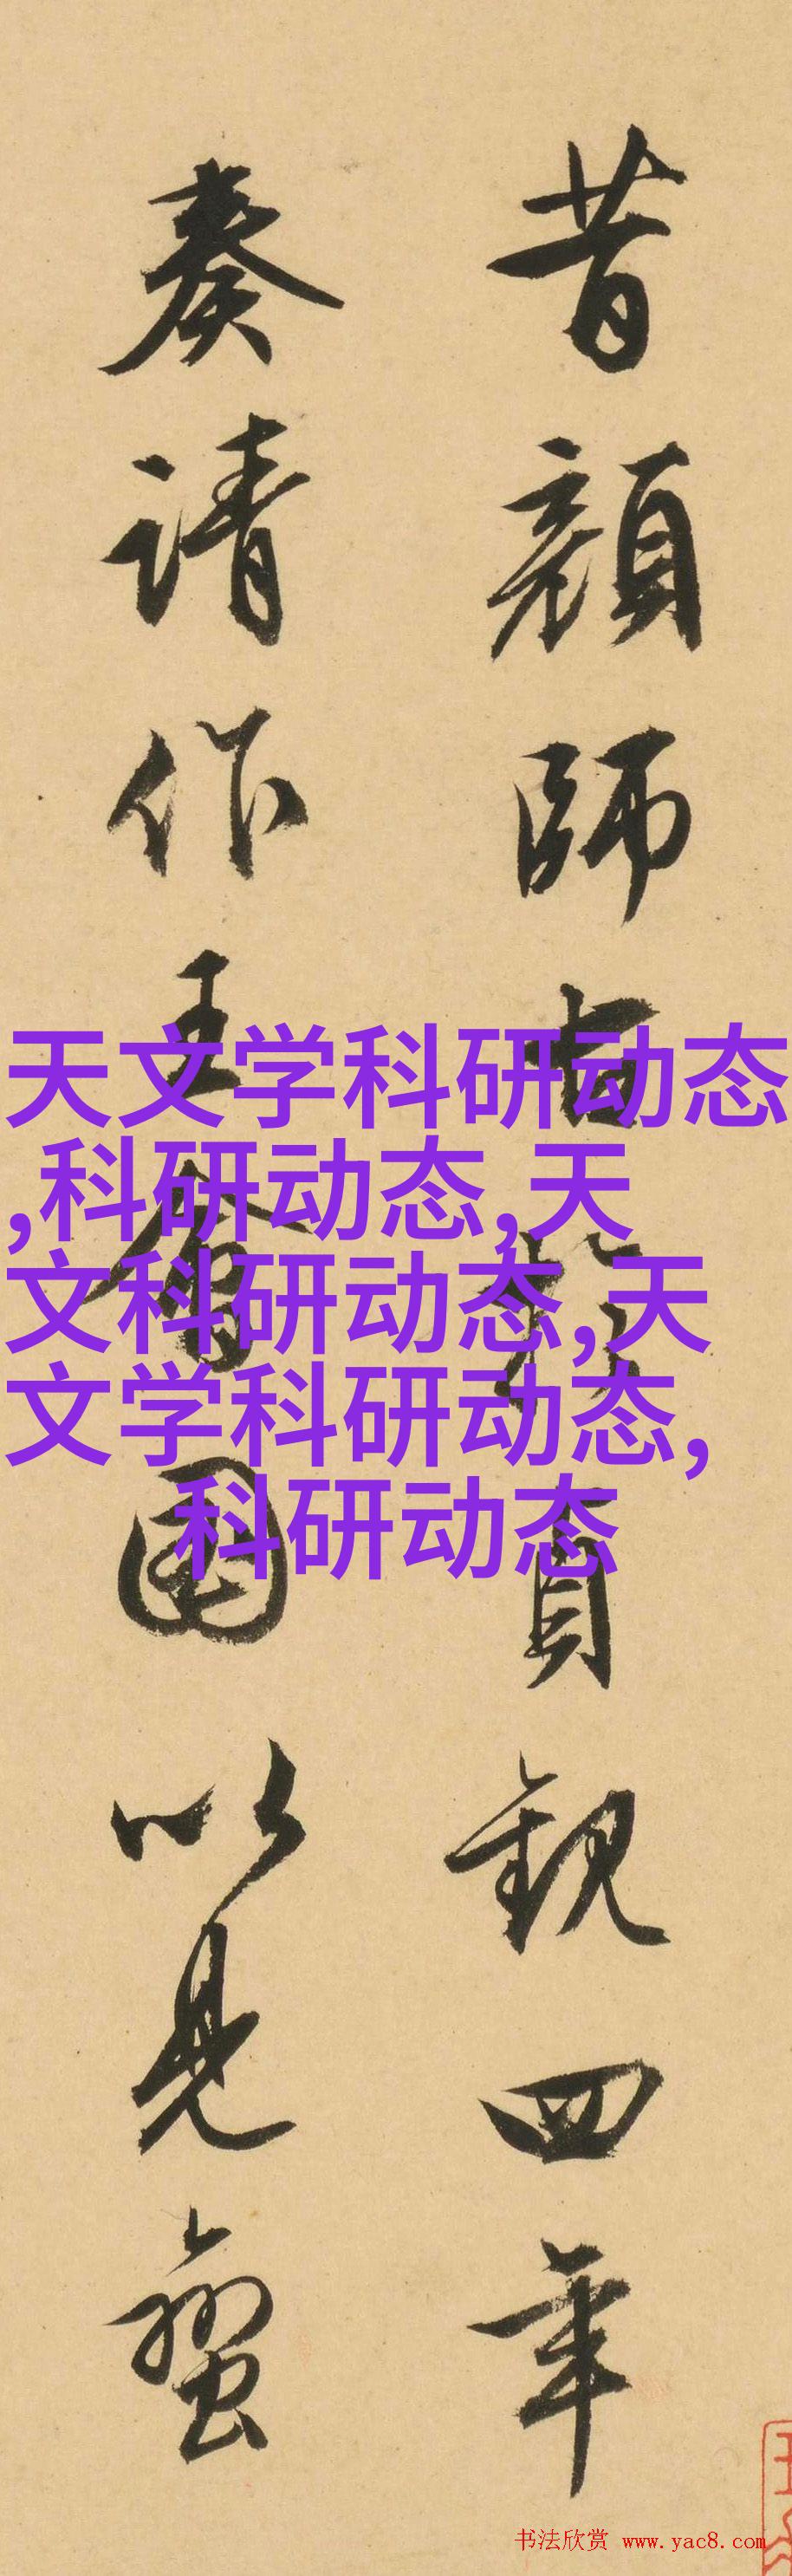 昔顏師古於貞觀四年
奏請作王會圖以見蠻
天文学科研动态
,科研动态,天
文科研动态,天
文学科研动态,
科研动态
书法欣赏 www.yac8.com